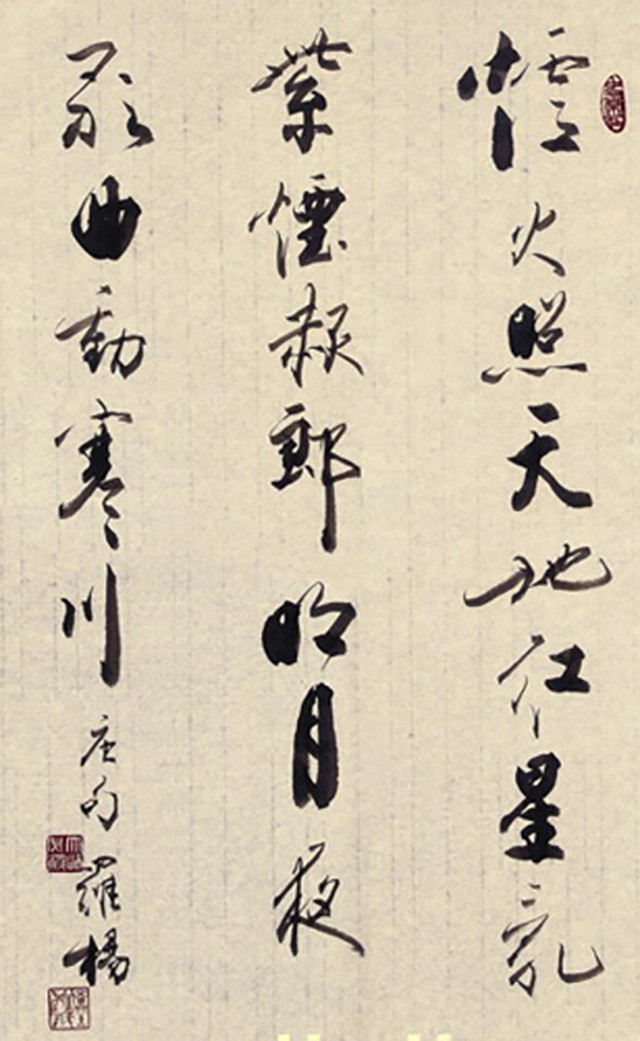 爐火照天地紅星亂
紫煙赧郎明月夜
歌曲動寒川 唐句 羅楊